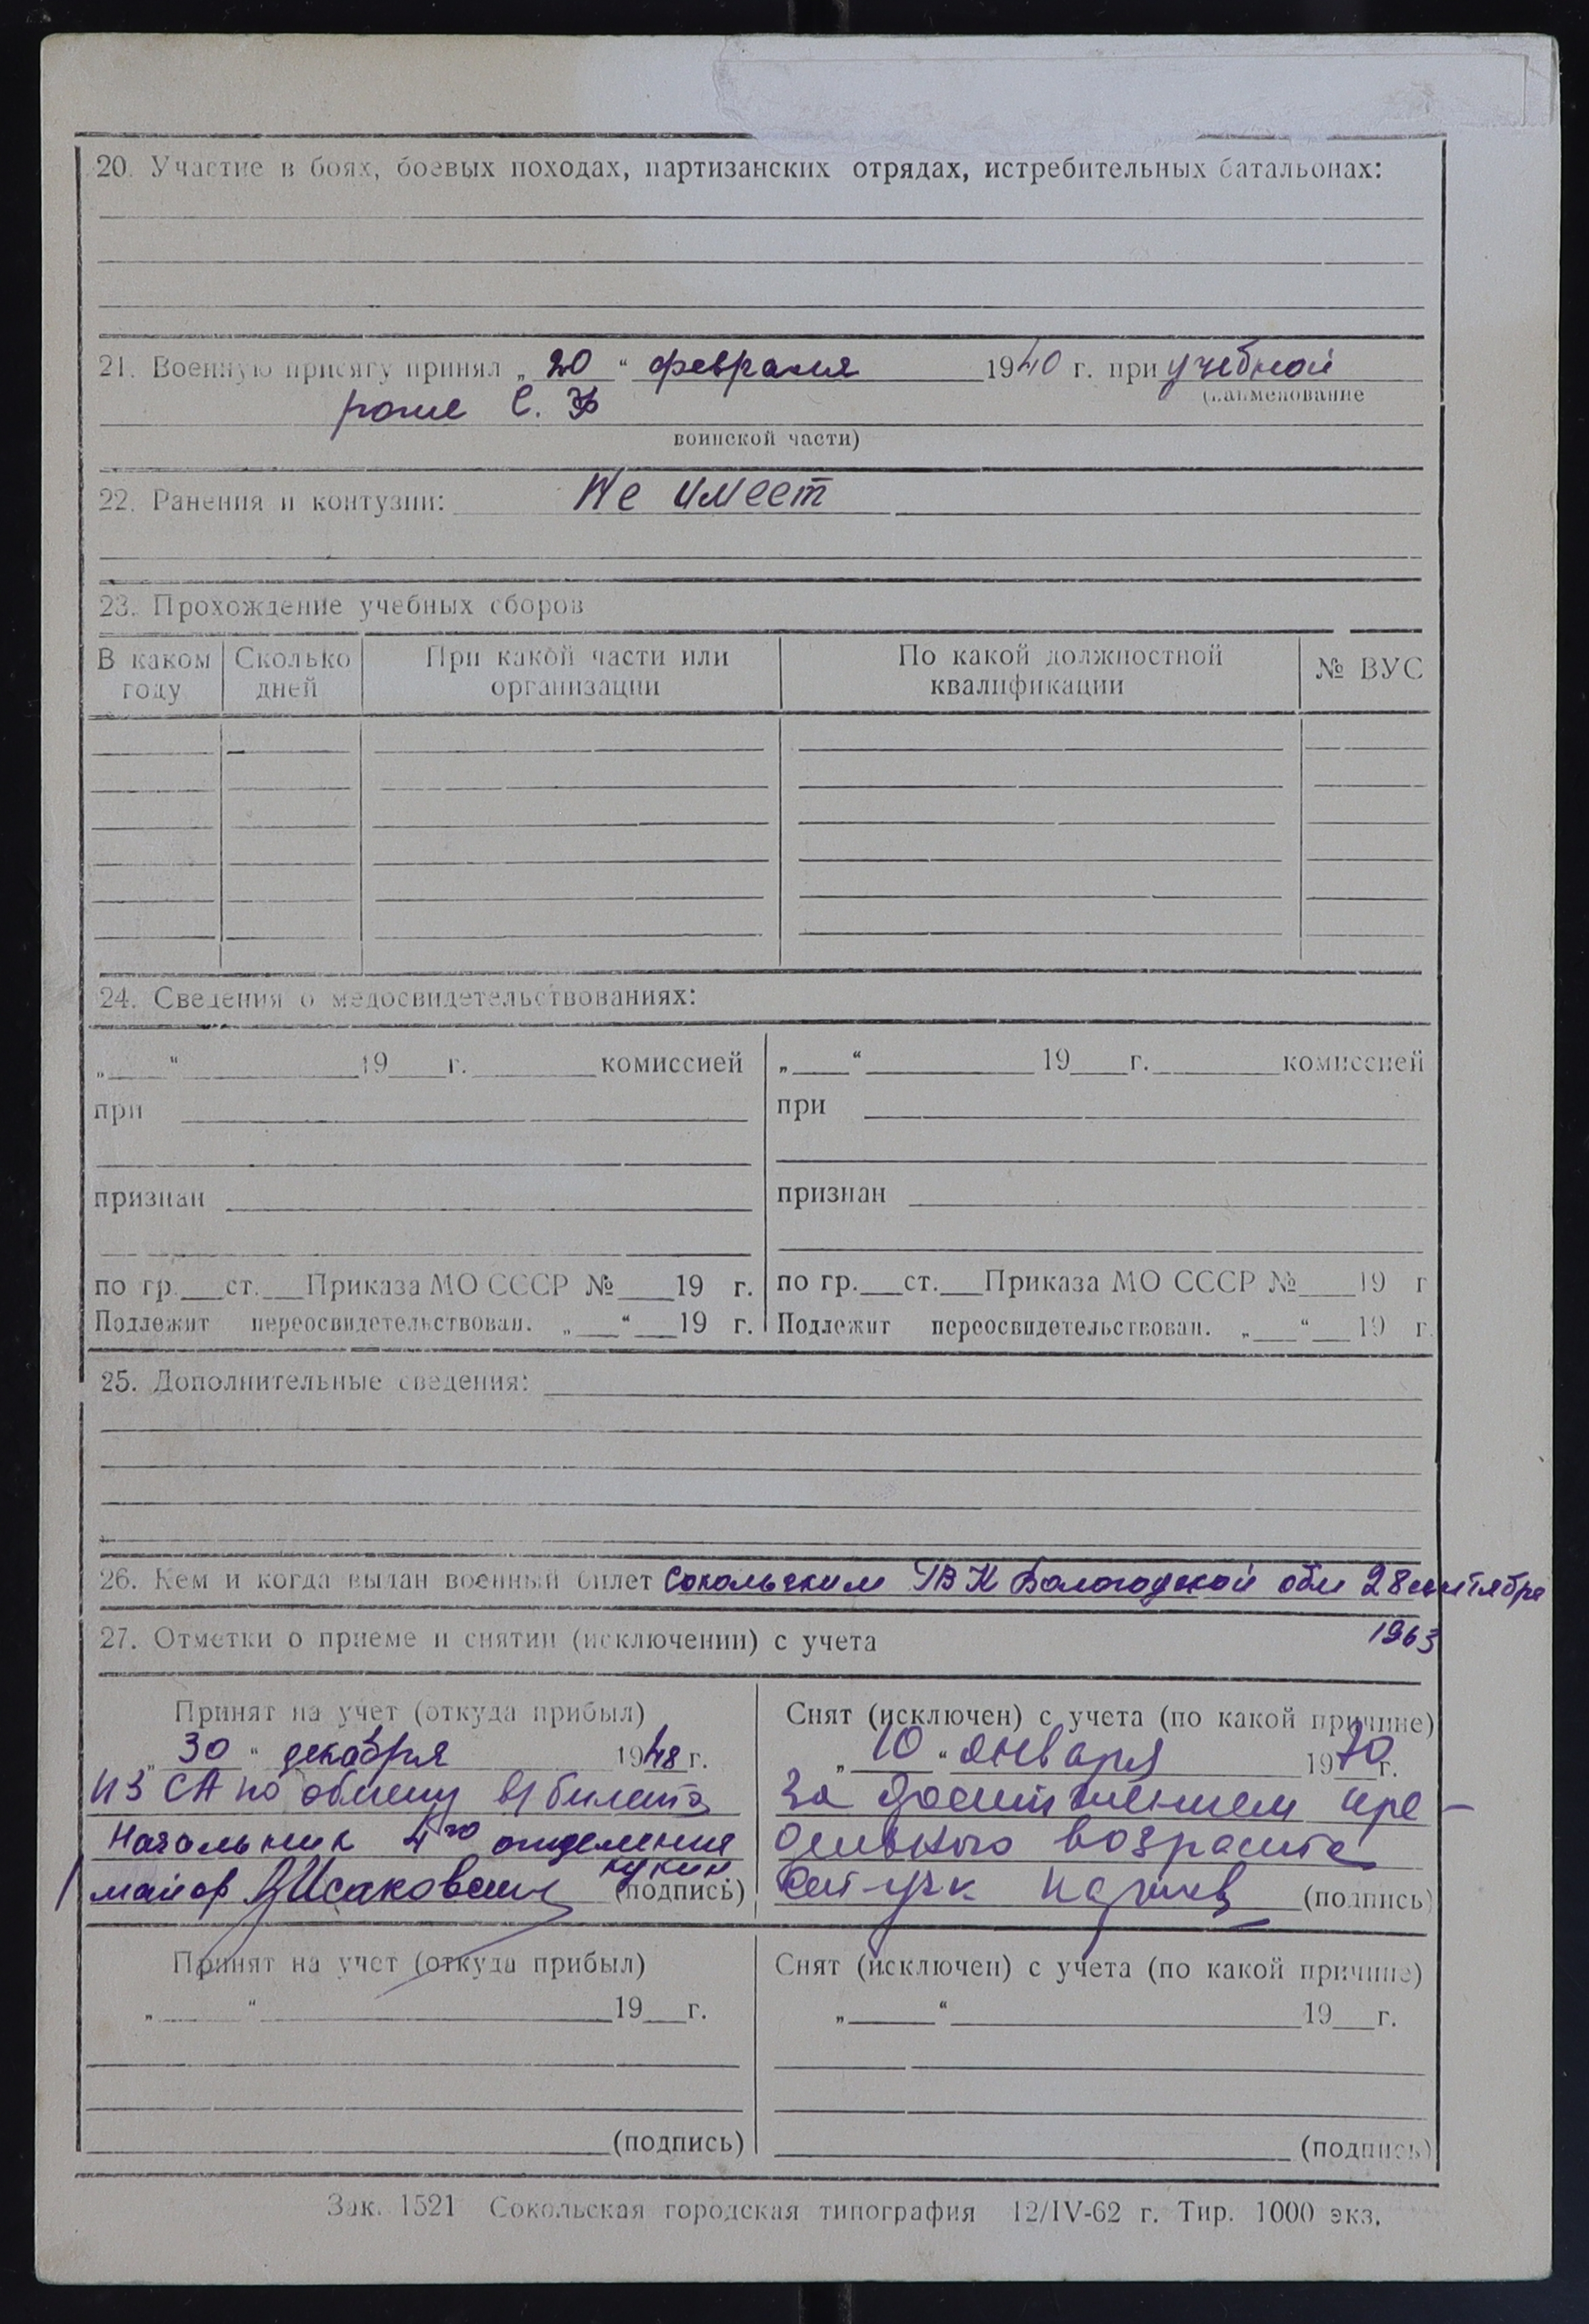 20. Участие в боях, боевых походах, партизанских отрядах, истребительных батальонах:
21. Военную присягу принял „ 20 “ февраля 1940 г. при учебной
(наименование
роте С. Ф
воинской части)
22. Ранения и контузии: Не имеет
23. Прохождение учебных сборов
В каком году Сколько дней При какой части или организации По какой должностной квалификации № ВУС
24. Сведения о медосвидетельствованиях:
„ “ 19 г. комиссией „ “ 19 г. комиссией
при при
признан признан
по гр. ст. Приказа МО СССР № 19 г. по гр. ст. Приказа МО СССР № 19 г
Подлежит переосвидетельствован. „ “ 19 г. Подлежит переосвидетельствован. „ “ 19 г.
25. Дополнительные сведения:
26. Кем и когда выдан военный билет Сокольским ГВК Вологодской обл 28 сентября
1963
27. Отметки о приеме и снятии (исключении) с учета
Принят на учет (откуда прибыл) Снят (исключен) с учета (по какой причине)
„ 30 “ декабря 1948 г. „ 10 “ января 1970 г.
из СА по обмену в/билета За достижением пре-
Начальник 4го отделения дельного возраста
майор Исаковский (подпись) (подпись)
Принят на учет (откуда прибыл) Снят (исключен) с учета (по какой причине)
„ “ 19 г. „ “ 19 г.
(подпись) (подпись)
Зак. 1521 Сокольская городская типография 12/IV-62 г. Тир. 1000 экз.